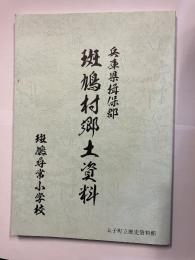 兵庫県揖保郡
斑鳩村郷土資料
斑鳩尋常小学校
太子町立歴史資料館